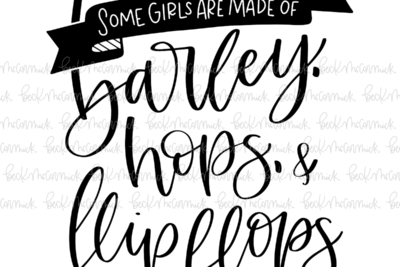 SOME GIRLS ARE MADE OF
barley,
hops, &
flip flops